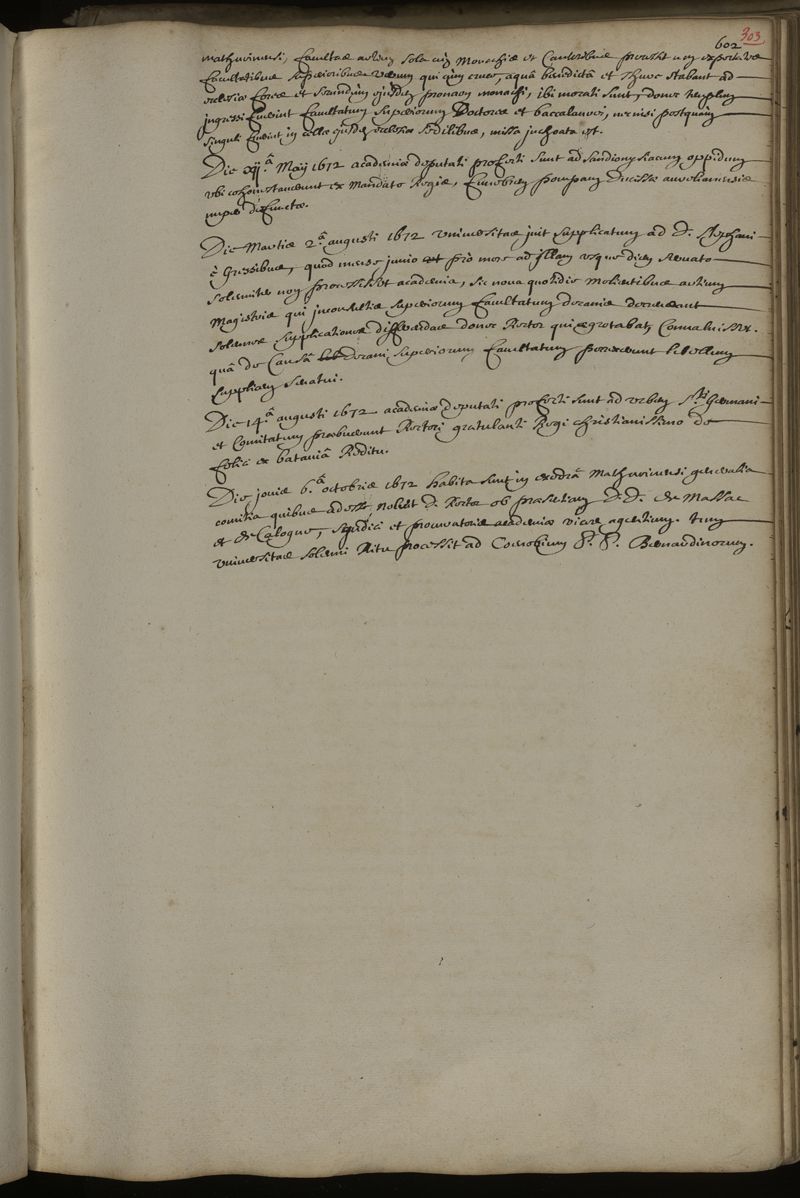 602 303
mathurinensi, facultas artium sola cum Monachis et Cantoribus processit non expectatis
facultatibus superioribus verum qui cum cruce, aquâ benedictâ et thure stabant ad
ecclesiæ fores et secundum ejusdem pronaon monachi, ibi morati sunt, donec templum
ingressi fuerint facultatum superiorum Doctores et baccalaurei, nec nisi postquam
singuli fuerint in cellæ ejusdem ecclesiæ sedilibus, missa inchoata est.
Die xij.ª Maij 1672 academiæ deputati profecti sunt ad sandionysiacum oppidum
ubi cohonestaverunt ex Mandato Regis, funebrem pompam Ducissæ aurelianensis
nuper defunctæ.
Die Martis 2.ª augusti 1672 Universitas ivit supplicatum ad D. Stephani
è Gressibus, quod mense junio et pro more ad illam usque diem servato
solemniter non processisset academia, sic nova quotidie molientibus artium
Magistris qui inconsultis superiorum facultatum decanis decreverant
solemnes supplicationes differendas donec Rector qui ægrotabat, convaluisset.
quâ de Causâ decani superiorum facultatum porrexerunt libellum
supplicem senatui.
Die 14.ª augusti 1672 academiæ deputati profecti sunt ad urbem S.ti Germani
et Comitatum præbuerunt Rectori gratulanti Regi christianissimo de
felici ex bataviâ Reditu.
Die jovis 6.ª octobris 1672 habita sunt in exedrâ Mathurinensi generalia
comitia quibus adesse noluit D. Rector ob præsentiam D.D. de Massac
et de Cologne, syndici et procuratoris academiæ vices agentium. tum
universitas solemni Ritu processit ad Coenobium P. P. Bernardinorum.